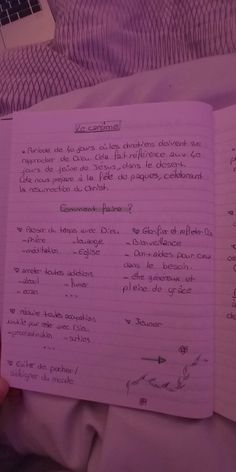 Le carême
• Période de 40 jours où les chrétiens doivent se
rapprocher de Dieu. Cela fait référence aux 40
jours de jeûne de Jésus, dans le désert.
Cela nous prépare à la fête de pâques, célébrant
la résurrection du Christ.
Comment faire ?
♡ Passer du temps avec Dieu
- Prière - louange
- méditation - Eglise
♡ arrêter toutes addictions
- alcool - fumer
- écran ...
♡ réduire toutes occupations
inutile pour rester avec Dieu
- procrastination - sorties
...
♡ éviter de pécher /
s'éloigner du monde
♡ Glorifier et refléter Dieu
- Bienveillance
- Don + aides pour ceux
dans le besoin
- être généreux et
pleine de grâce
♡ Jeûner